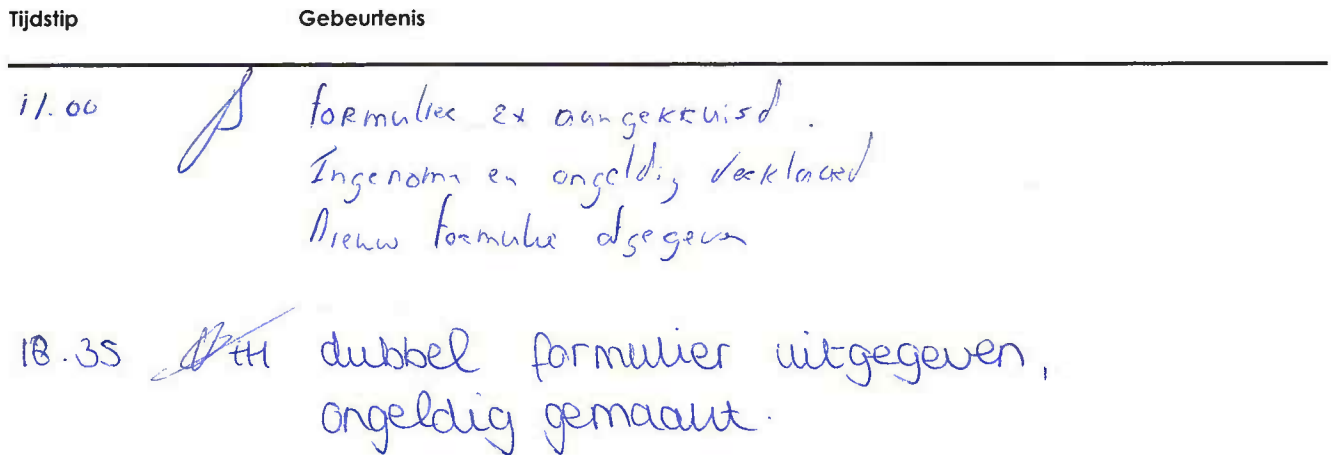 Tijdstip Gebeurtenis
11.00 formulier 2x aangekruisd.
Ingenomn en ongeldig verklaard
Nieuw formulie afgegeven
18.35 HH dubbel formulier uitgegeven,
ongeldig gemaakt.